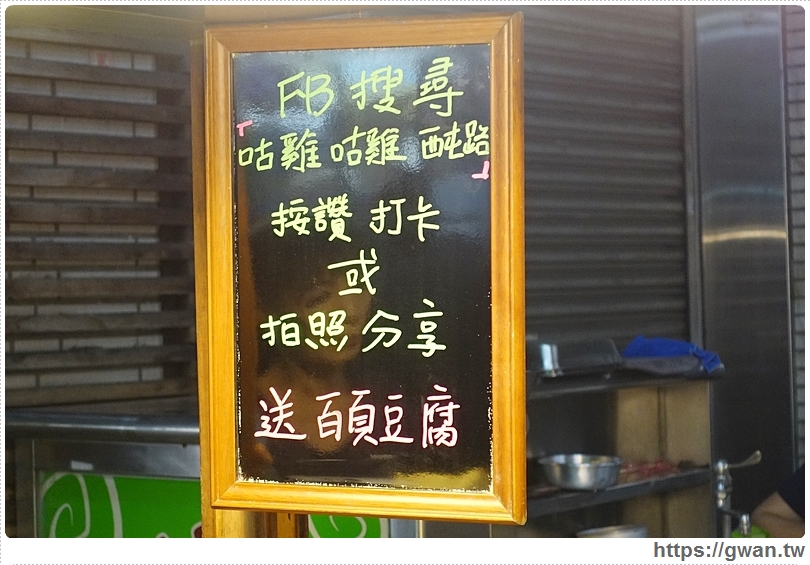 FB 搜尋
「咕雞咕雞 西屯路」
按讚 打卡
或
拍照分享
送 百頁豆腐
https://gwan.tw